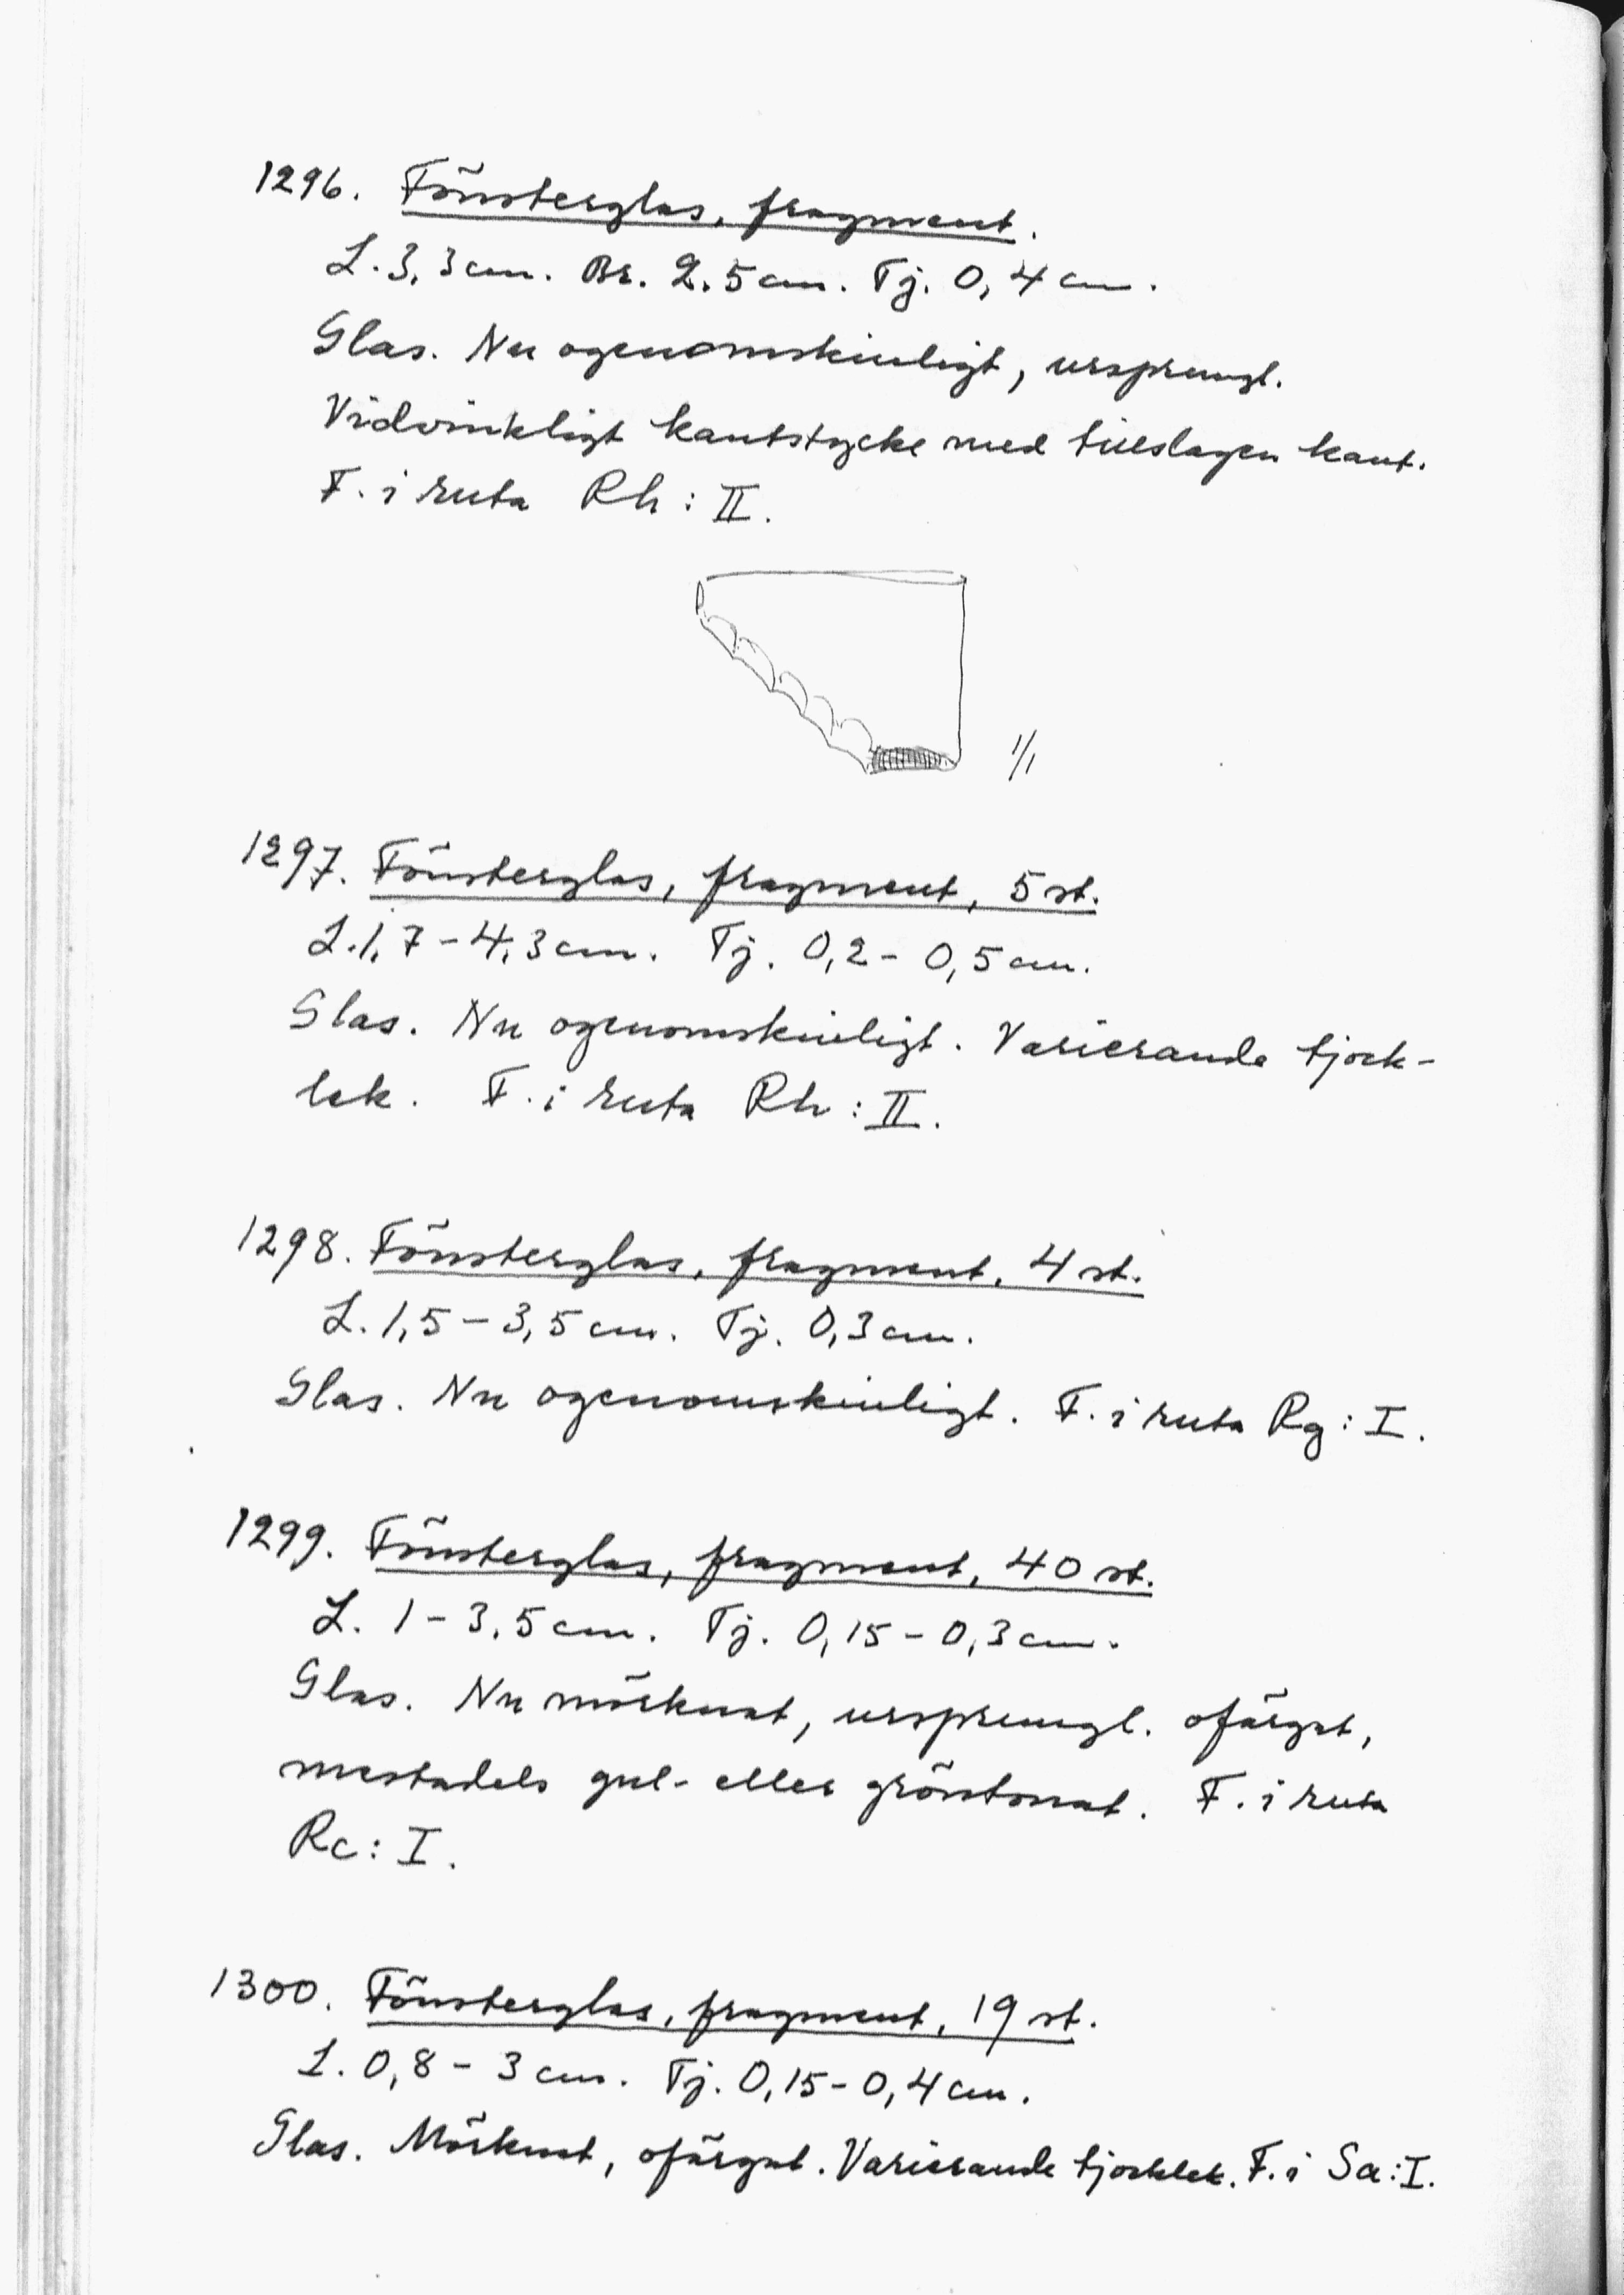 1296. Fönsterglas, fragment.
L. 3,3 cm. Br. 2,5 cm. Tj. 0,4 cm.
Glas. Nu ogenomskinligt, ursprungl.
Vidvinkligt kantstycke med tillslagen kant.
F. i ruta Rh : II.
1/1
1297. Fönsterglas, fragment, 5 st.
L. 1,7 – 4,3 cm. Tj. 0,2 – 0,5 cm.
Glas. Nu ogenomskinligt. Varierande tjock-
lek. F. i ruta Rh : II.
1298. Fönsterglas, fragment, 4 st.
L. 1,5 – 3,5 cm. Tj. 0,3 cm.
Glas. Nu ogenomskinligt. F. i ruta Rg : I.
1299. Fönsterglas, fragment, 40 st.
L. 1 – 3,5 cm. Tj. 0,15 – 0,3 cm.
Glas. Nu mörknat, ursprungl. ofärgat,
mestadels gul- eller gröntonat. F. i ruta
Rc : I.
1300. Fönsterglas, fragment, 19 st.
L. 0,8 – 3 cm. Tj. 0,15 – 0,4 cm.
Glas. Mörknat, ofärgat. Varierande tjocklek. F. i Sa : I.